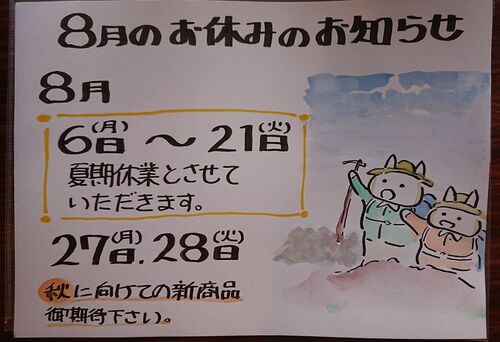 8月のお休みのお知らせ
8月
6日(月)～21日(火)
夏期休業とさせて
いただきます。
27日(月).28日(火)
秋に向けての新商品
御期待下さい。